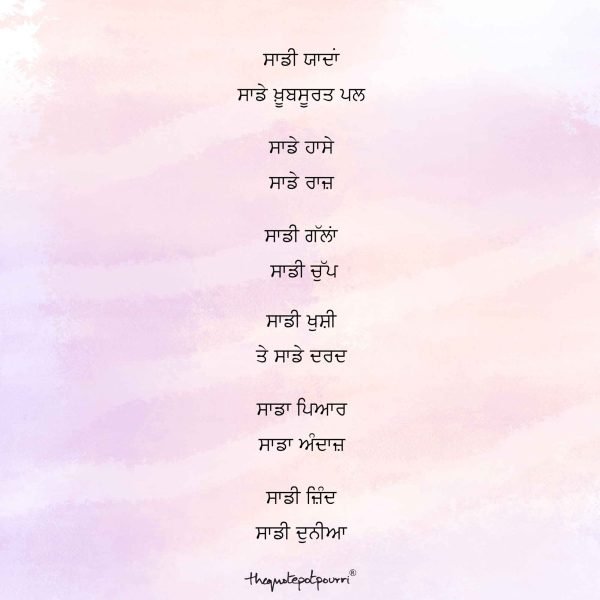 ਸਾਡੀ ਯਾਦਾਂ
ਸਾਡੇ ਖ਼ੂਬਸੂਰਤ ਪਲ
ਸਾਡੇ ਹਾਸੇ
ਸਾਡੇ ਰਾਜ਼
ਸਾਡੀ ਗੱਲਾਂ
ਸਾਡੀ ਚੁੱਪ
ਸਾਡੀ ਖੁਸ਼ੀ
ਤੇ ਸਾਡੇ ਦਰਦ
ਸਾਡਾ ਪਿਆਰ
ਸਾਡਾ ਅੰਦਾਜ਼
ਸਾਡੀ ਜ਼ਿੰਦ
ਸਾਡੀ ਦੁਨੀਆ
thequotepotpourri®